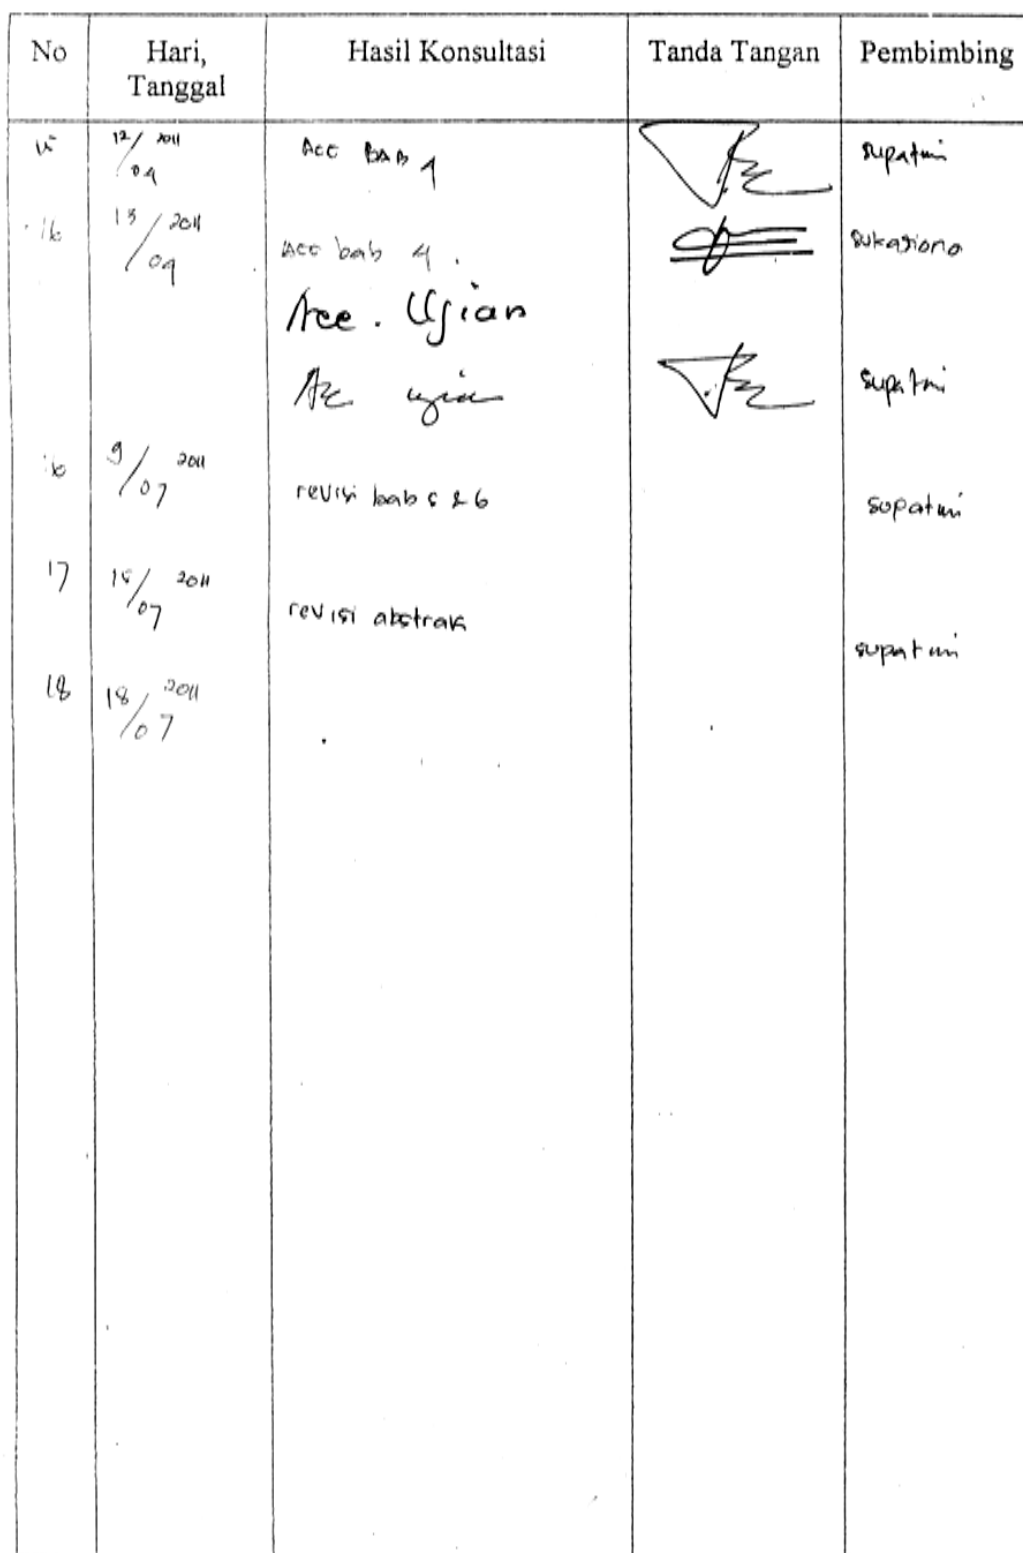 No Hari, Tanggal Hasil Konsultasi Tanda Tangan Pembimbing
15 12/04 2011 Acc BAB 4 supatmi
16 13/04 2011 Acc bab 4. sukariono
Acc. Ujian
Acc ujian supatmi
16 9/07 2011 revisi bab 5 & 6 supatmi
17 15/07 2011 revisi abstrak supatmi
18 18/07 2011